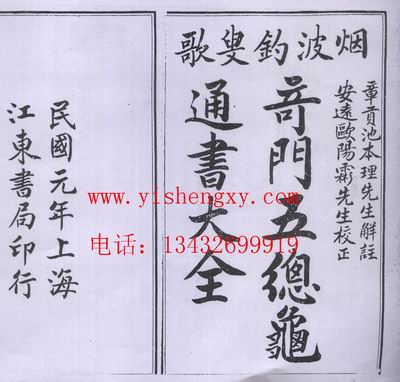 烟波釣叟歌
章貢池本理先生解註
安遠歐陽先生校正
竒門五總龜
通書大全
民國元年上海
江東書局印行
www.yishengxy.com
电话：13432699919